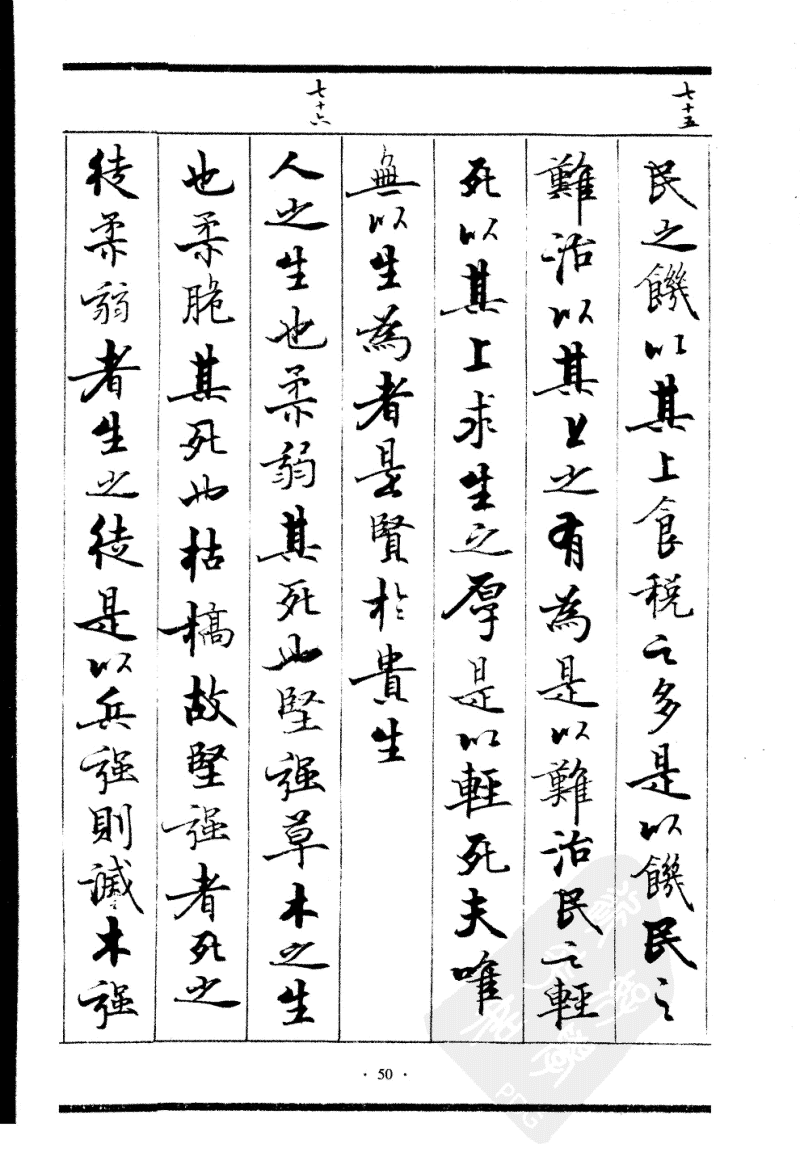 七十五
民之饑以其上食税之多是以饑民之
難治以其上之有為是以難治民之輕
死以其上求生之厚是以輕死夫唯
無以生為者是賢於貴生
七十六
人之生也柔弱其死也堅强草木之生
也柔脆其死也枯槁故堅强者死之
徒柔弱者生之徒是以兵强則滅木强
· 50 ·